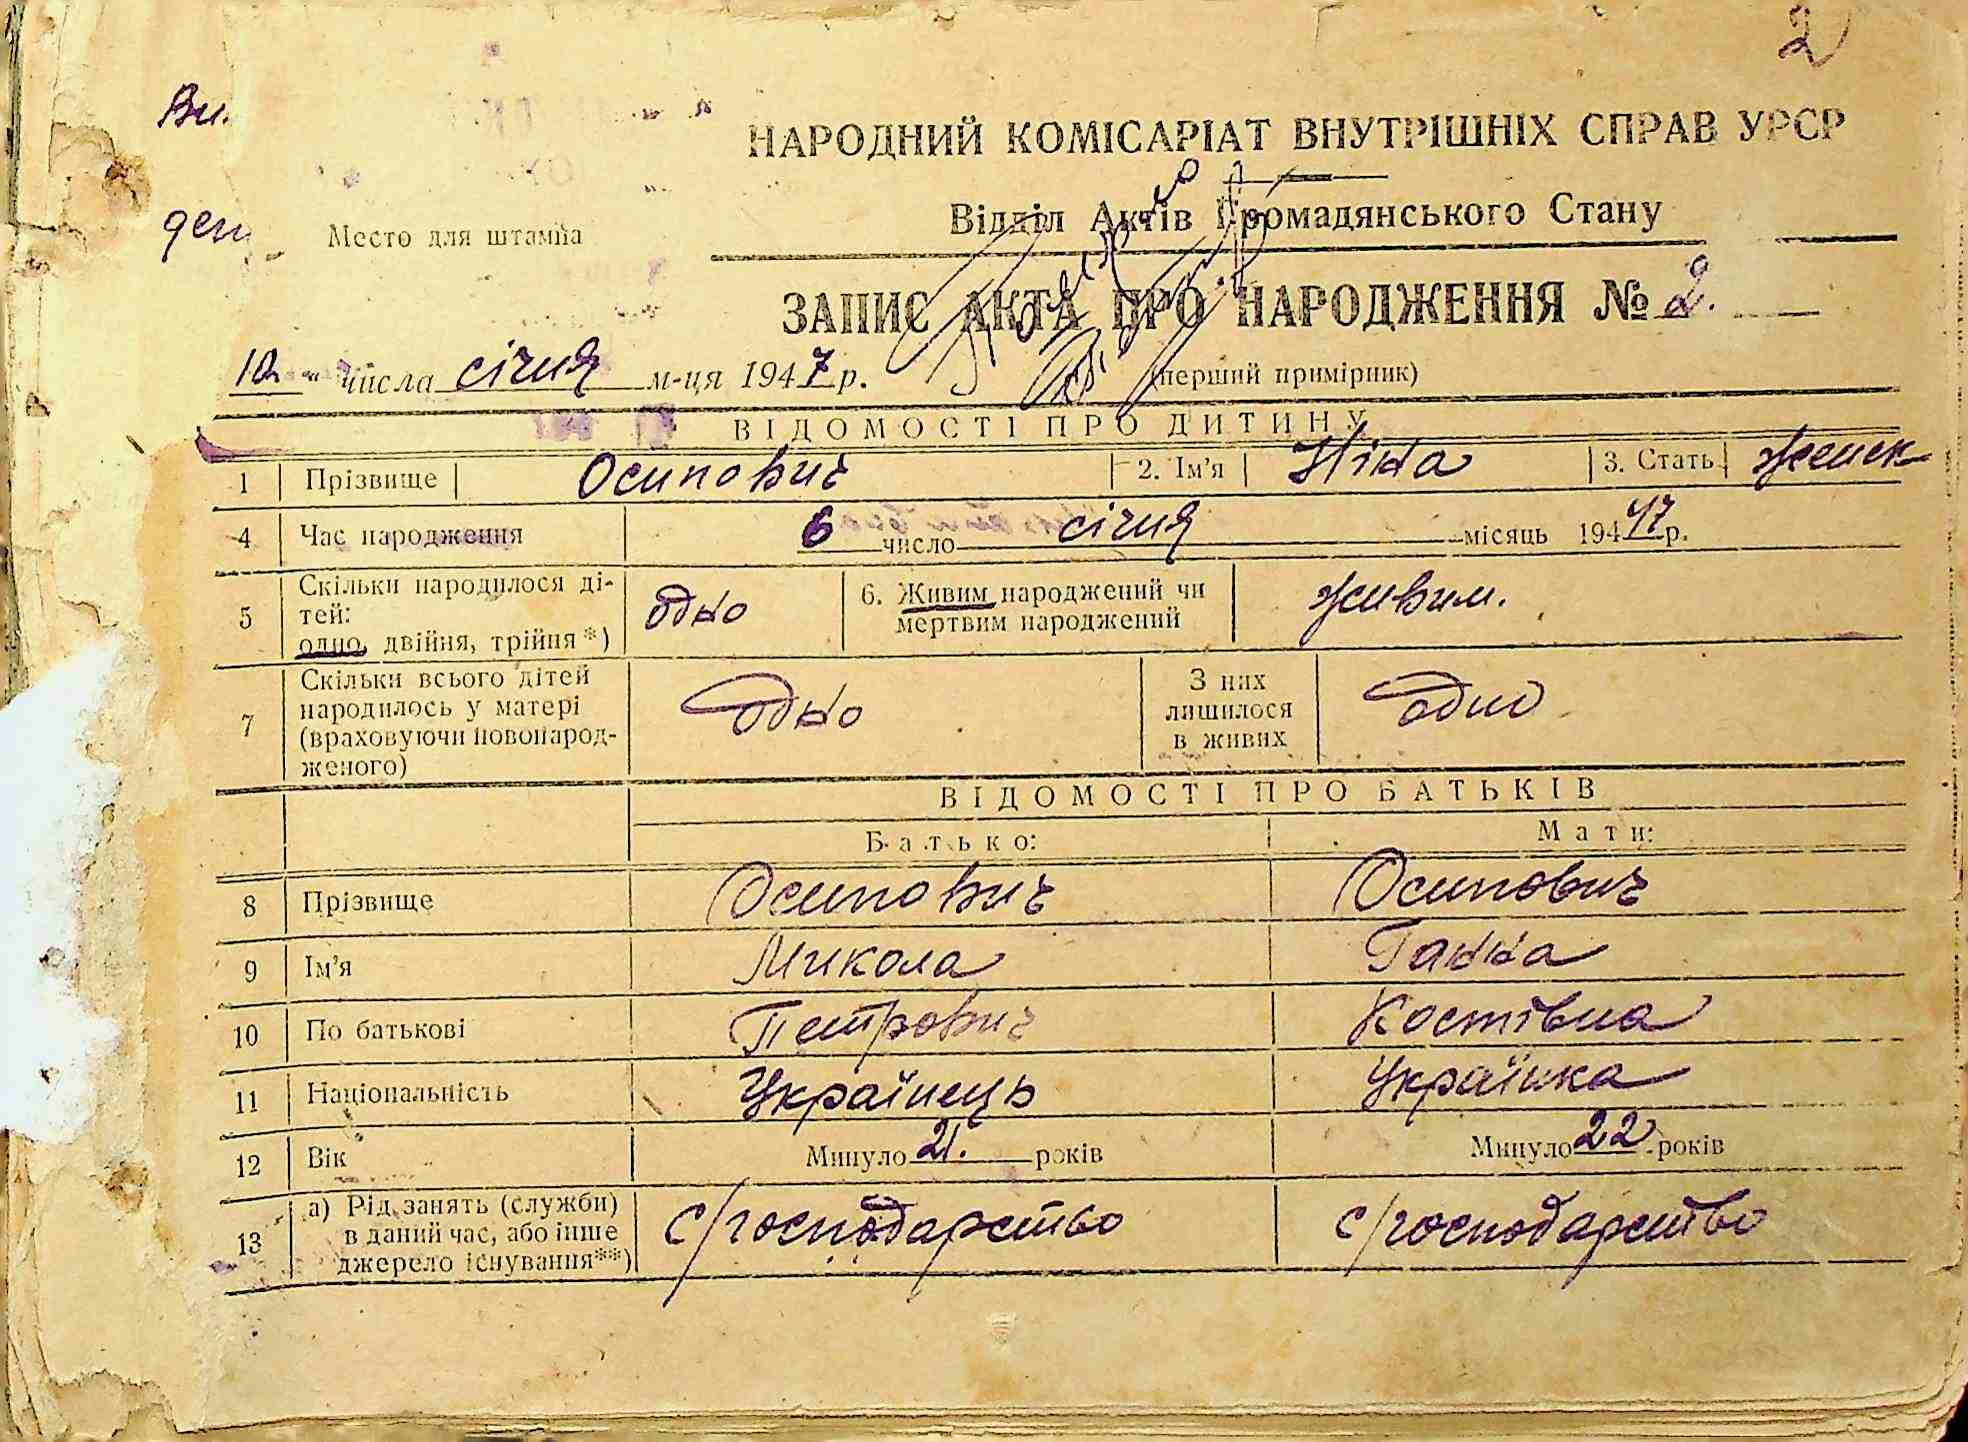 2
Ви.
НАРОДНИЙ КОМІСАРІАТ ВНУТРІШНІХ СПРАВ УРСР
ден
Место для штампа
Відділ Актів Громадянського Стану
ЗАПИС АКТА ПРО НАРОДЖЕННЯ № 2.
10 " числа січня м-ця 1947 р. (перший примірник)
ВІДОМОСТІ ПРО ДИТИНУ
1 Прізвище Осипович 2. Ім'я Ніна 3. Стать Женск
4 Час народження 6 число січня місяць 19447 р.
5 Скільки народилося ді-
тей:
одно, двійня, трійня *) одно 6. Живим народжений чи
мертвим народжений живим.
7 Скільки всього дітей
народилось у матері
(враховуючи новонарод-
женого) одно З них
лишилося
в живих одно
ВІДОМОСТІ ПРО БАТЬКІВ
Батько: Мати:
8 Прізвище Осипович Осипович
9 Ім'я Микола Ганна
10 По батькові Петрович Костівна
11 Національність Українець Українка
12 Вік Минуло 21. років Минуло 22 років
13 а) Рід занять (служби)
в даний час, або інше
джерело існування**) с/господарство с/господарство